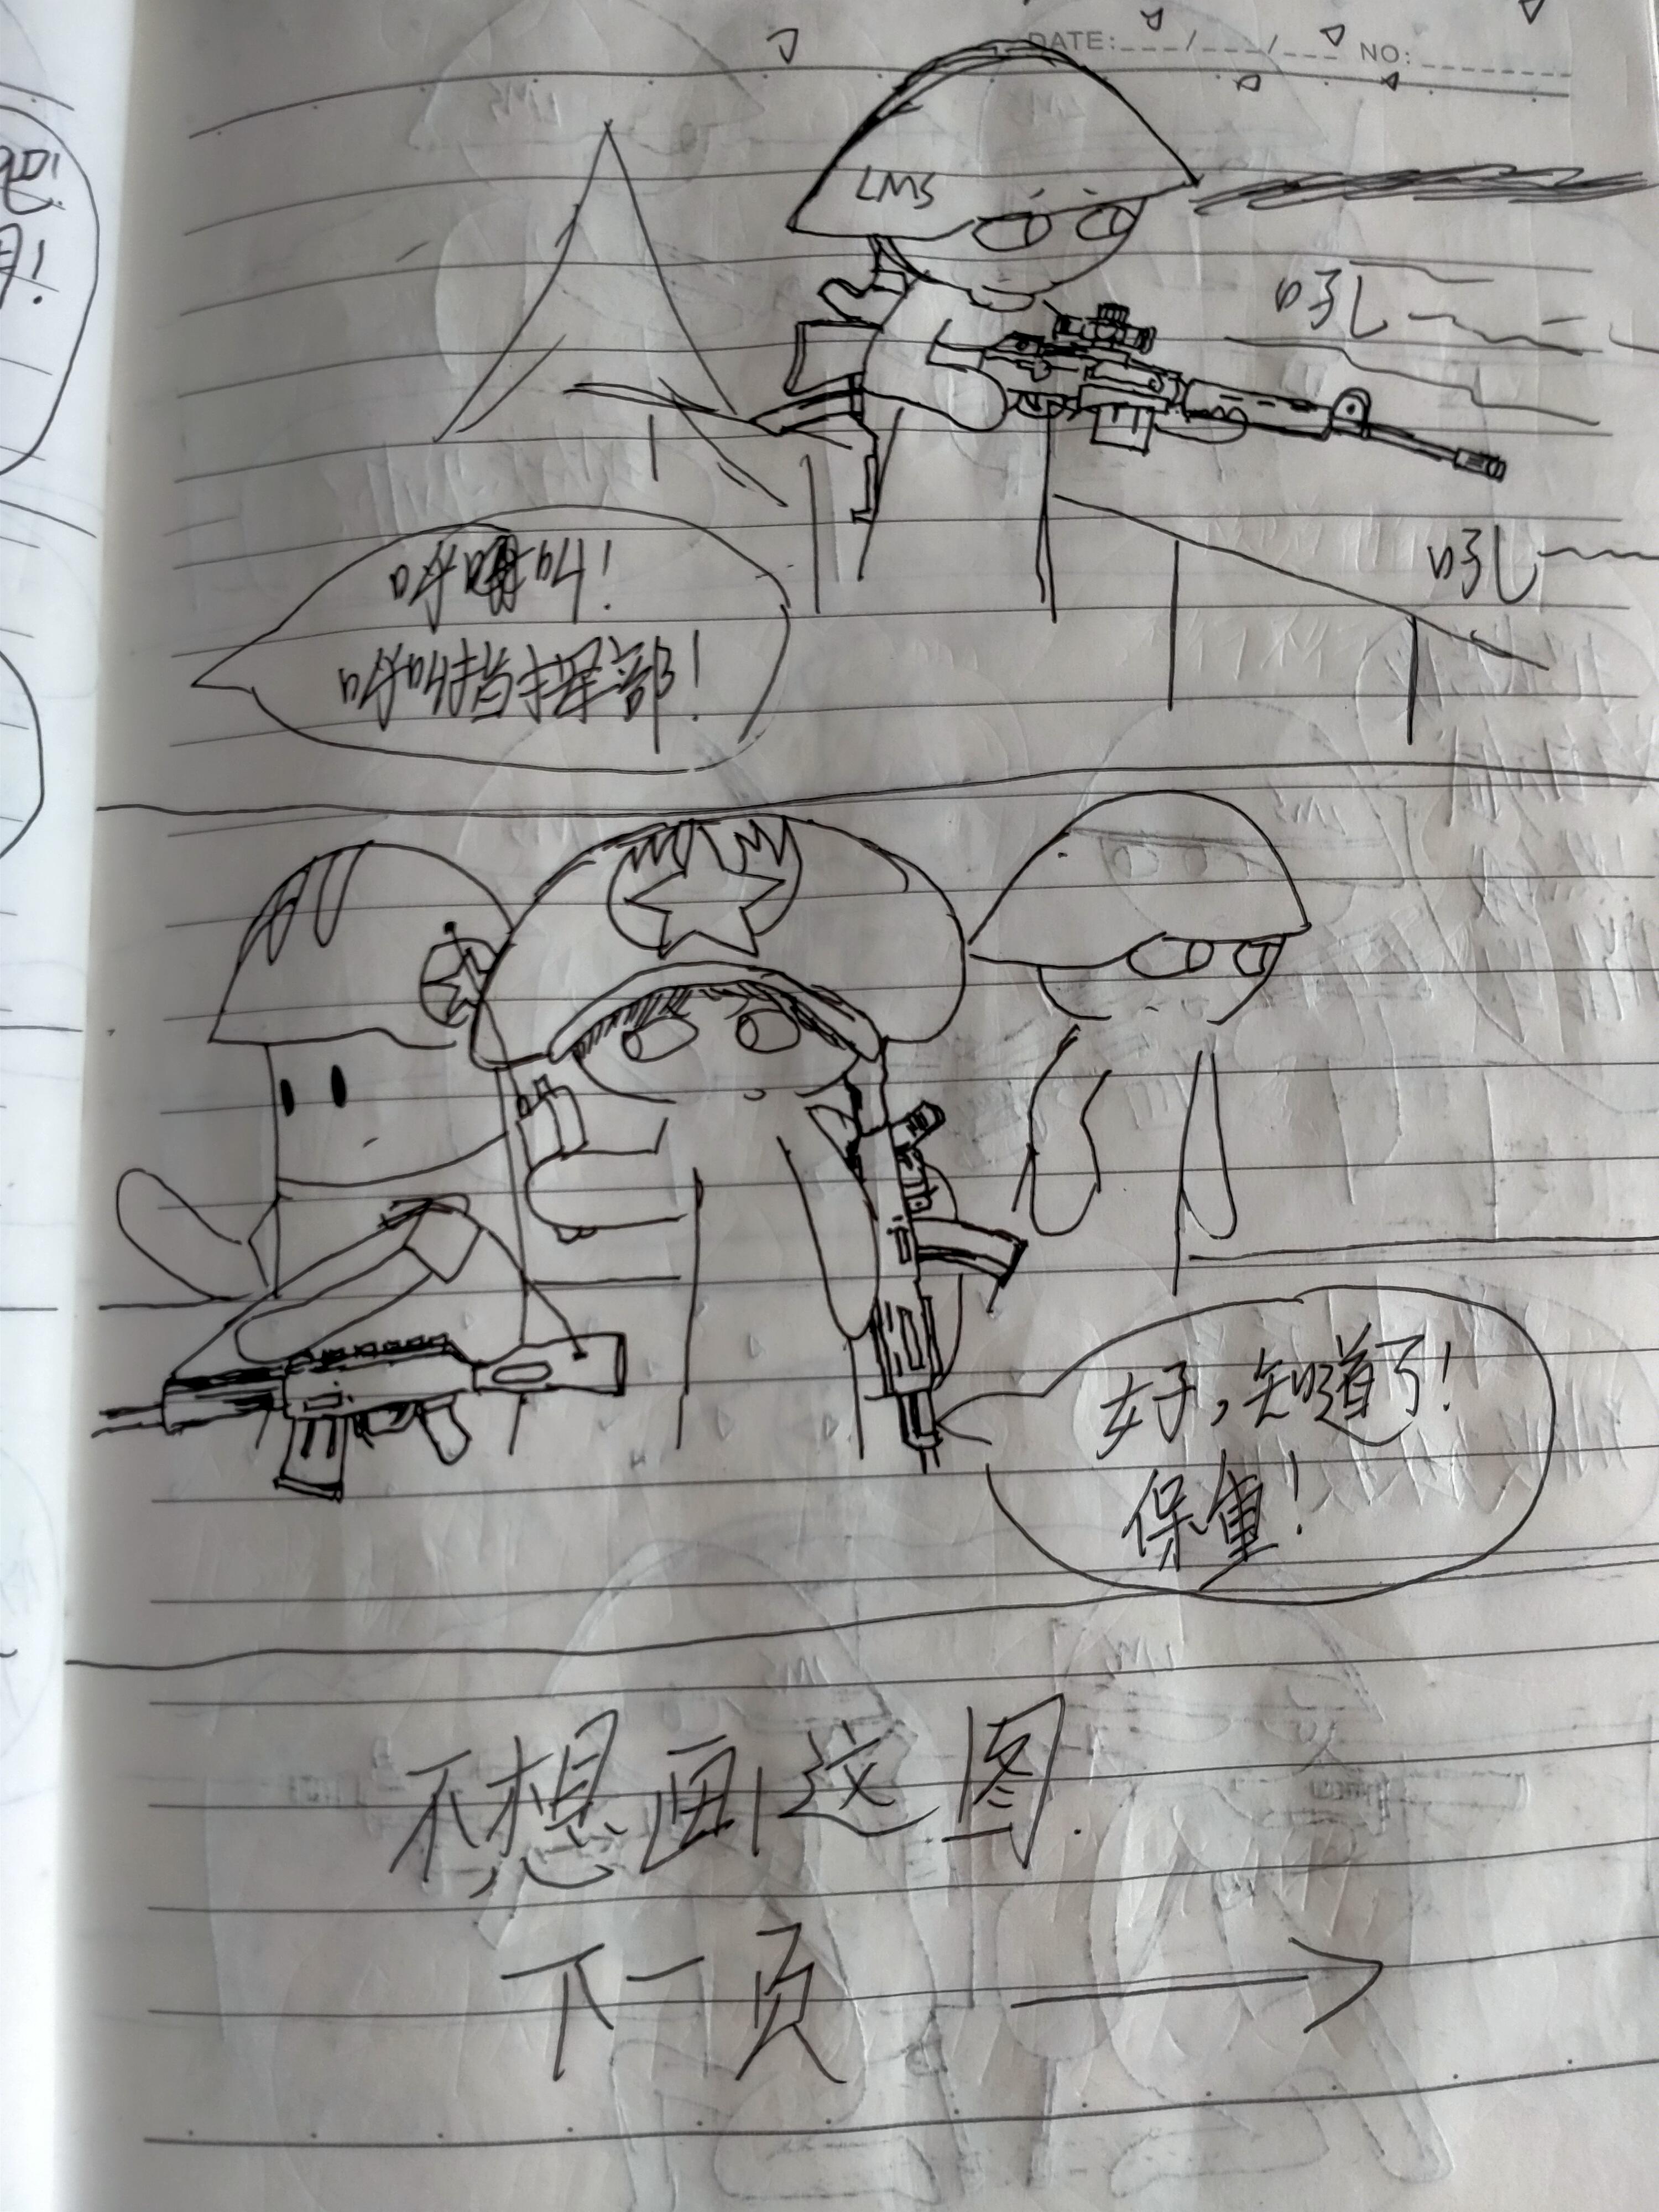 DATE:___/___/___ NO:________
LMS
吼
吼
呼叫!
呼叫指挥部!
好,知道了!
保重!
不想画这图.
下一页